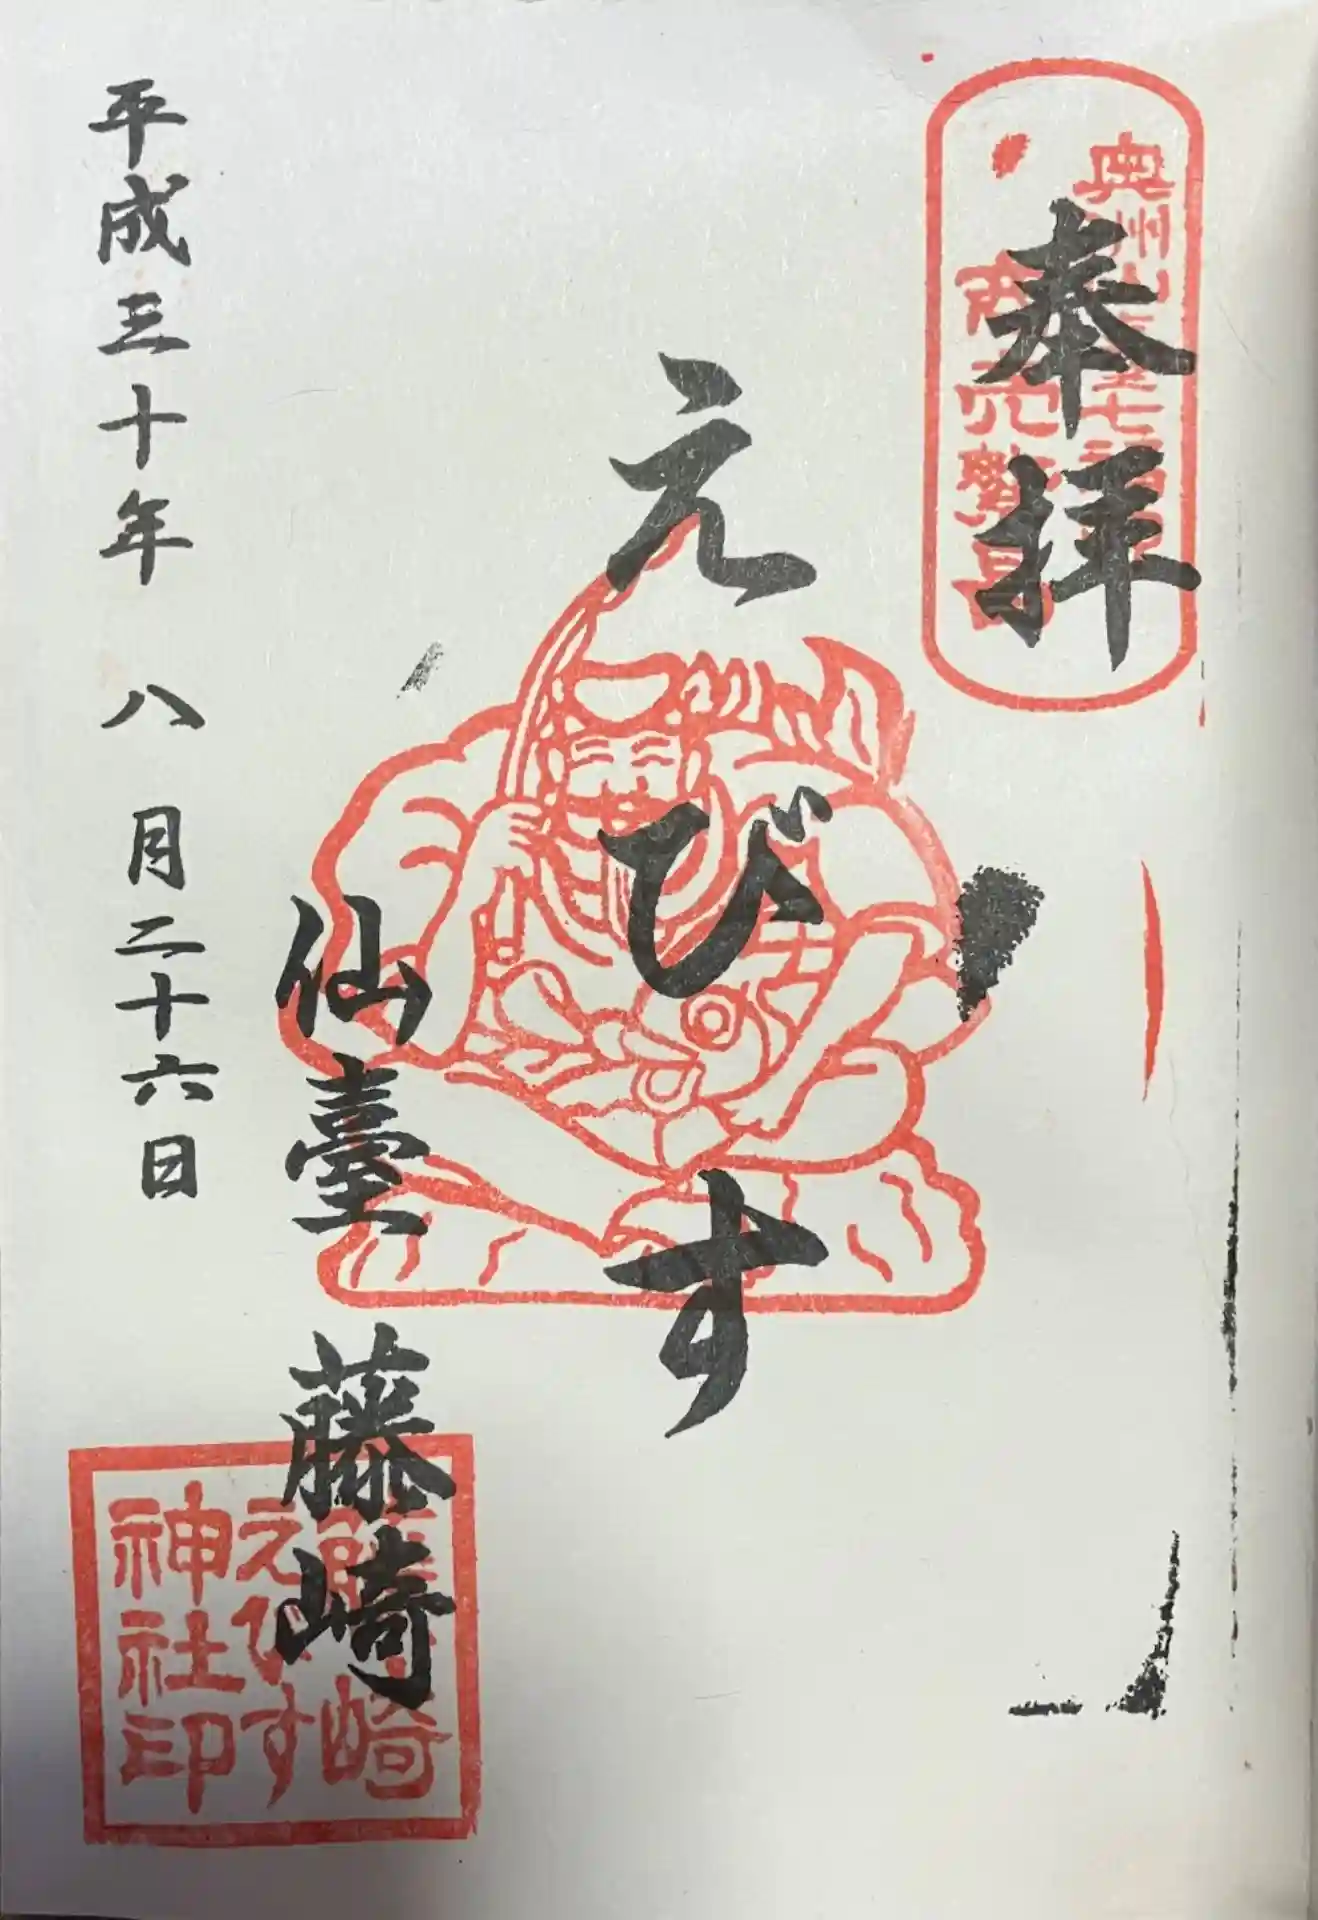 奥州仙臺七福神
商売繁昌
奉拝
えびす
仙臺 藤崎
藤崎
えびす
神社印
平成三十年 八 月二十六日